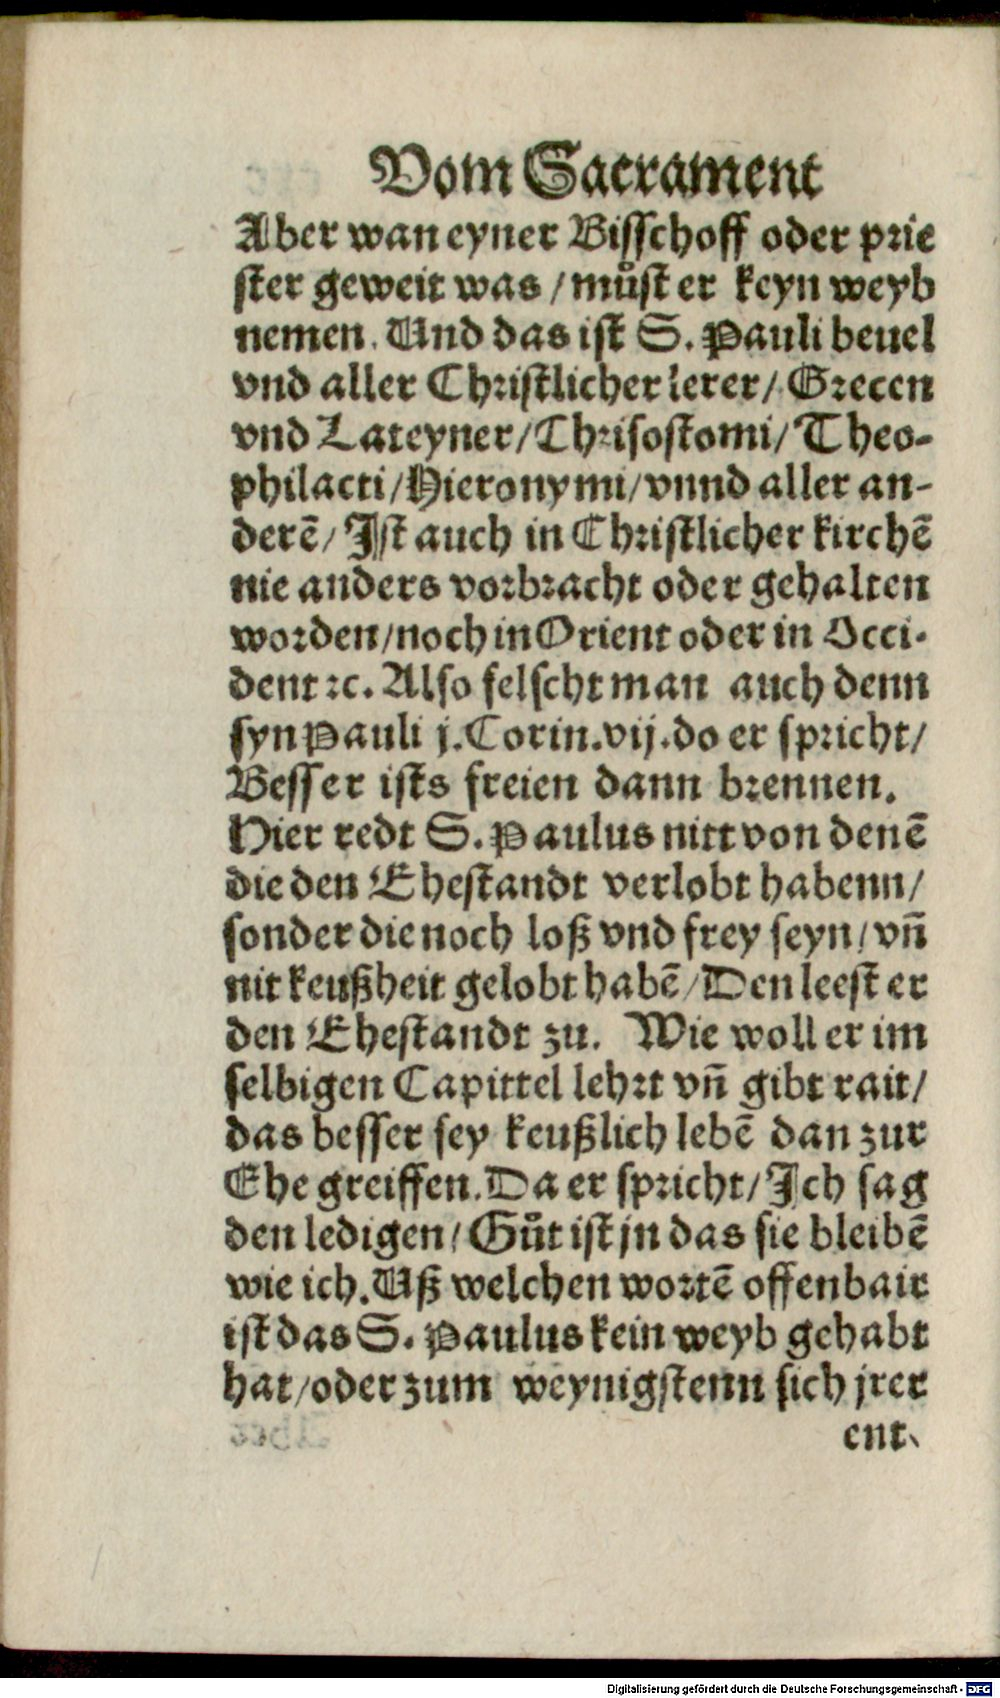 Vom Sacrament
Aber wan eyner Bisschoff oder prie
ster geweit was / můst er keyn weyb
nemen. Und das ist S. Pauli beuel
vnd aller Christlicher lerer / Grecen
vnd Lateyner / Chrisostomi / Theo-
philacti / Hieronymi / vnnd aller an-
derẽ / Ist auch in Christlicher kirchẽ
nie anders vorbracht oder gehalten
worden / noch in Orient oder in Occi-
dent ꝛc. Also felscht man auch denn
syn Pauli j. Corin. vij. do er spricht /
Besser ists freien dann brennen.
Hier redt S. Paulus nitt von denẽ
die den Ehestandt verlobt habenn /
sonder die noch loß vnd frey seyn / vñ
nit keußheit gelobt habẽ / Den leest er
den Ehestandt zu. Wie woll er im
selbigen Capittel lehrt vñ gibt rait /
das besser sey keußlich lebẽ dan zur
Ehe greiffen. Da er spricht / Ich sag
den ledigen / Gůt ist jn das sie bleibẽ
wie ich. Uß welchen wortẽ offenbair
ist das S. Paulus kein weyb gehabt
hat / oder zum weynigstenn sich jrer
ent-
Digitalisierung gefördert durch die Deutsche Forschungsgemeinschaft - DFG